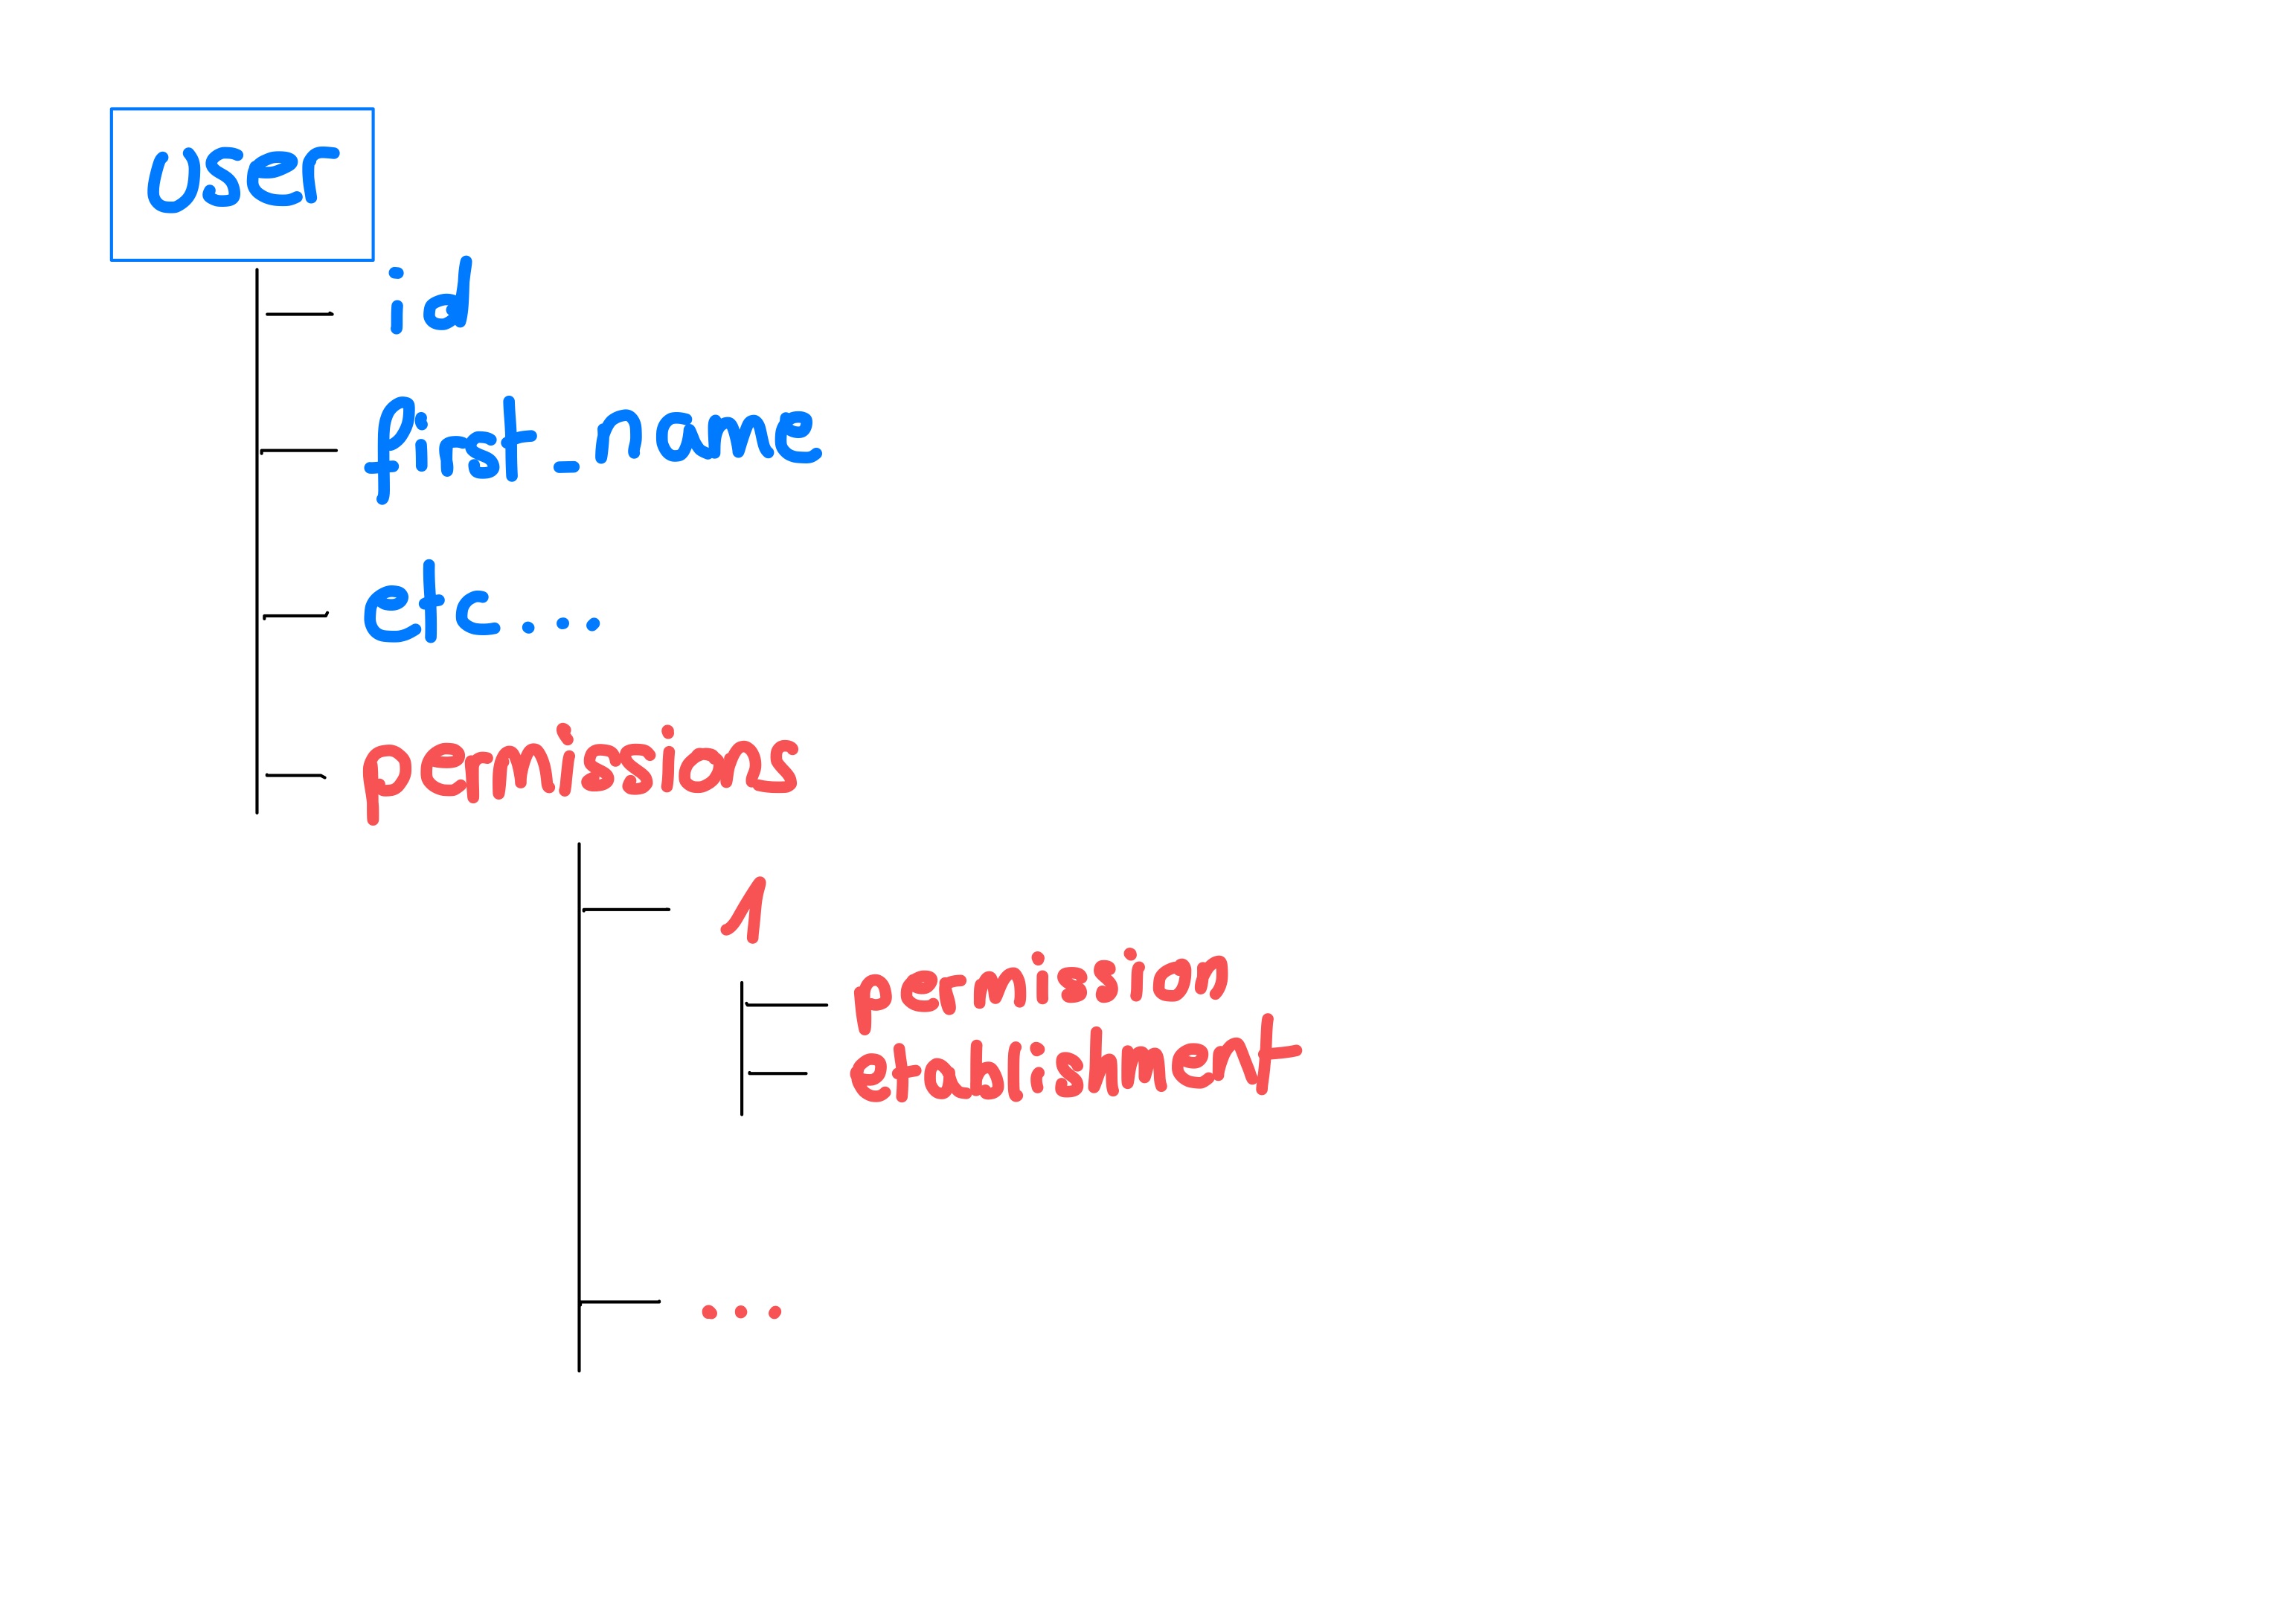 user
id
first_name
etc...
permissions
1
permission
etablishment
...